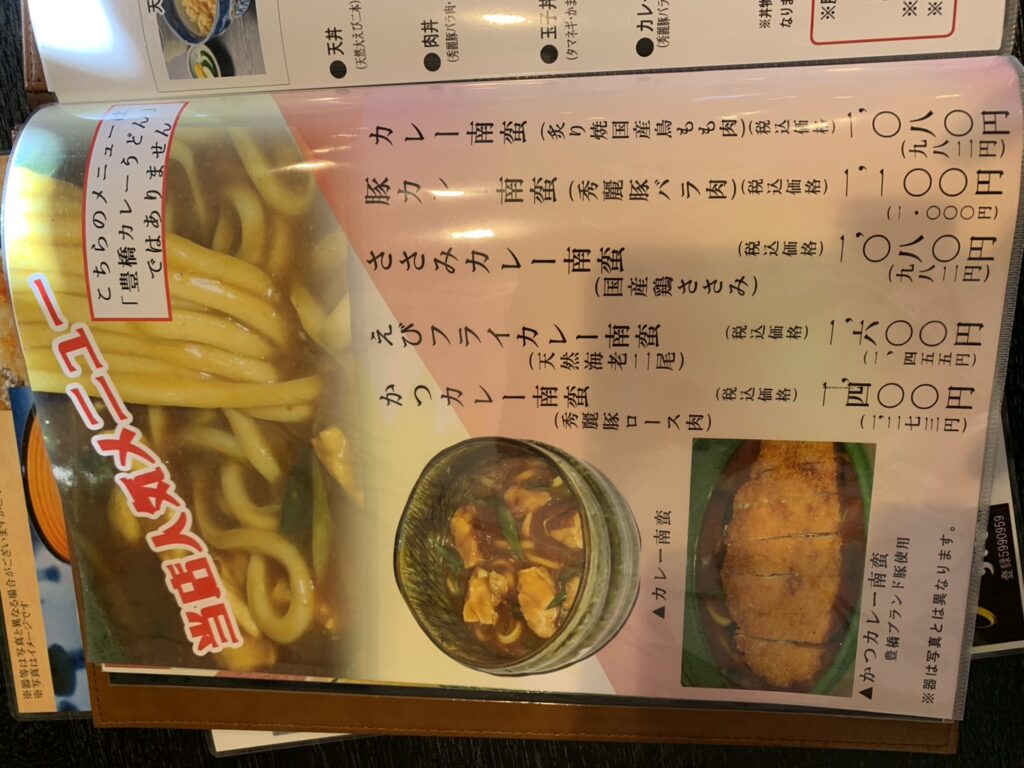 ●天丼
(天然大えび二本)
●肉丼
(秀麗豚バラ肉・
●玉子丼
(タマネギ・かま
●カレー
(秀麗豚バラ
※丼物
なりま
こちらのメニューは
「豊橋カレーうどん」
ではありません
当店人気メニュー
カレー南蛮(炙り焼国産鳥もも肉)(税込価格)一、〇八〇円
(九八二円)
豚カレー南蛮(秀麗豚バラ肉)(税込価格)一、一〇〇円
(一・〇〇〇円)
ささみカレー南蛮(税込価格)一、〇八〇円
(国産鶏ささみ)(九八二円)
えびフライカレー南蛮(税込価格)一、六〇〇円
(天然海老二尾)(一、四五五円)
かつカレー南蛮(税込価格)一、四〇〇円
(秀麗豚ロース肉)(一、二七三円)
▲カレー南蛮
▲かつカレー南蛮
豊橋ブランド豚使用
※器は写真とは異なります。
※器等は写真と異なる場合がございますが
※写真はイメージです
登録5990959